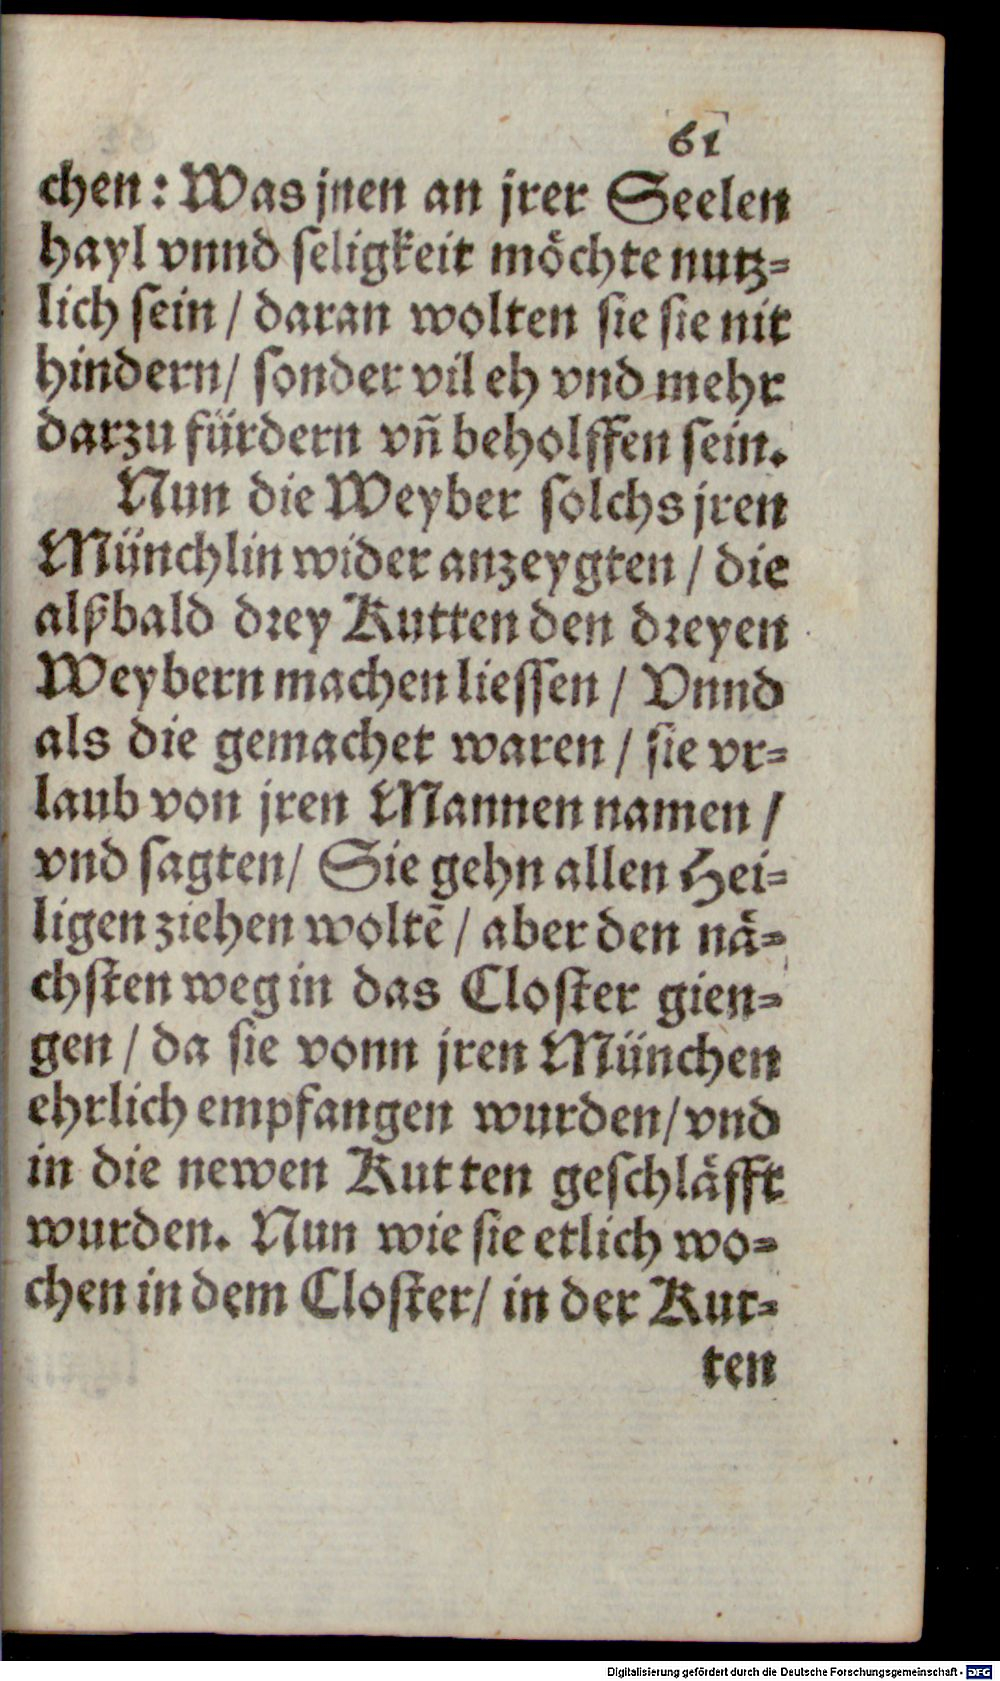 61
chen: Was jnen an jrer Seelen
hayl vnnd seligkeit möchte nutz=
lich sein / daran wolten sie sie nit
hindern/ sonder vil eh vnd mehr
darzu fürdern vñ beholffen sein.
Nun die Weyber solchs jren
Münchlin wider anzeygten / die
alßbald drey Kutten den dreyen
Weybern machen liessen / Vnnd
als die gemachet waren / sie vr=
laub von jren Mannen namen /
vnd sagten/ Sie gehn allen Hei=
ligen ziehen woltē / aber den nä=
chsten weg in das Closter gien=
gen / da sie vonn jren München
ehrlich empfangen wurden/ vnd
in die newen Kutten geschläfft
wurden. Nun wie sie etlich wo=
chen in dem Closter/ in der Kut=
ten
Digitalisierung gefördert durch die Deutsche Forschungsgemeinschaft - DFG